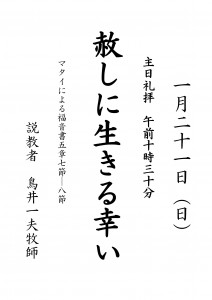 一月二十一日（日）
主日礼拝　午前十時三十分
赦しに生きる幸い
マタイによる福音書五章七節―八節
説教者　鳥井一夫牧師